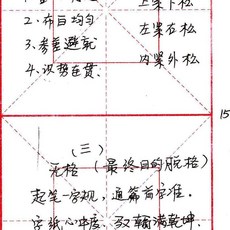 上紧下松
2.布白均匀
左紧右松
3.参差避就
内紧外松
4.识势连贯.
15
(三)
无格(最终目的脱格)
起笔一字规,通篇首字准.
字距心中度,